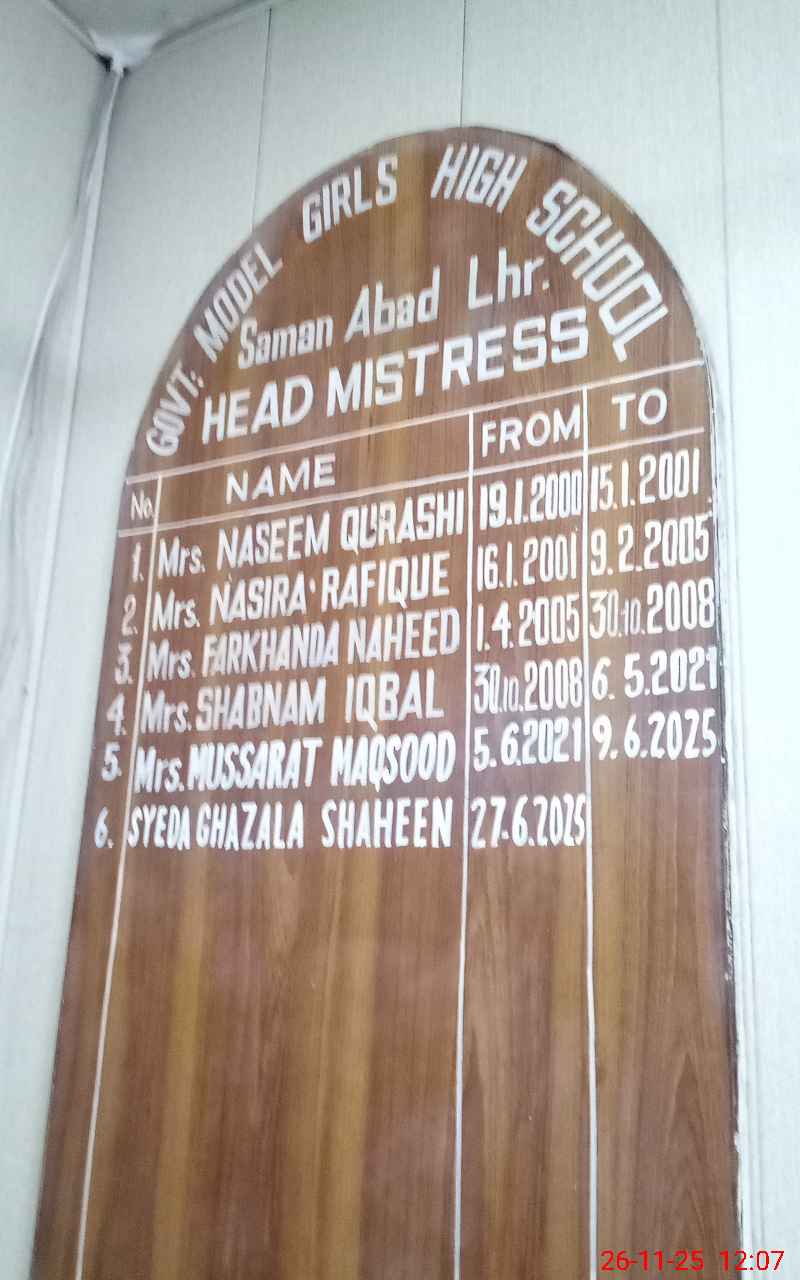 GOVT: MODEL GIRLS HIGH SCHOOL
Saman Abad Lhr.
HEAD MISTRESS
No. NAME FROM TO
1. Mrs. NASEEM QURASHI 19.1.2000 15.1.2001
2. Mrs. NASIRA RAFIQUE 16.1.2001 9.2.2005
3. Mrs. FARKHANDA NAHEED 1.4.2005 30.10.2008
4. Mrs. SHABNAM IQBAL 30.10.2008 6.5.2021
5. Mrs. MUSSARAT MAQSOOD 5.6.2021 9.6.2025
6. SYEDA GHAZALA SHAHEEN 27-6.2025
26-11-25 12:07